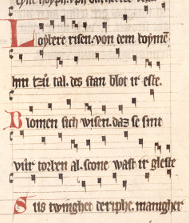 Loybere risen. von dem boymē
hin tzů tal. des stan blot ir este.
Blomen sich wisen. daz se sint
vůr torben al. scone wast ir gleste
Sus twinghet de riphe. manigher